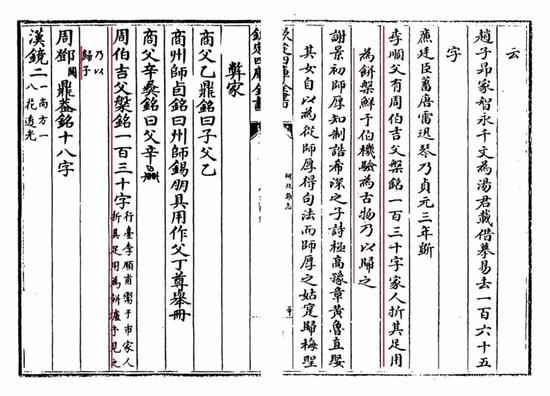 云
趙子昂家智永千文為湯君載借摹易去一百六十五
字
廉廷臣蓄唐雷迅琴乃貞元三年斵
李順父有周伯吉父槃銘一百三十字家人折其足用
為餅槃鮮于伯機驗為古物乃以歸之
謝景初師厚知制誥希深之子詩極高豫章黄魯直娶
其女自以為從師厚得句法而師厚之姑寔歸梅聖
研北雜志
欽定四庫全書
弊家
商父乙鼎銘曰子父乙
商州師卣銘曰州師錫朋具用作父丁尊舉冊
商父辛彝銘曰父辛
周伯吉父槃銘一百三十字行臺李順甫鬻于市家人
折其足用為餅爐予見之
乃以
歸予
周鄧闕鼎蓋銘十八字
漢鏡二一尚方一
八花透光